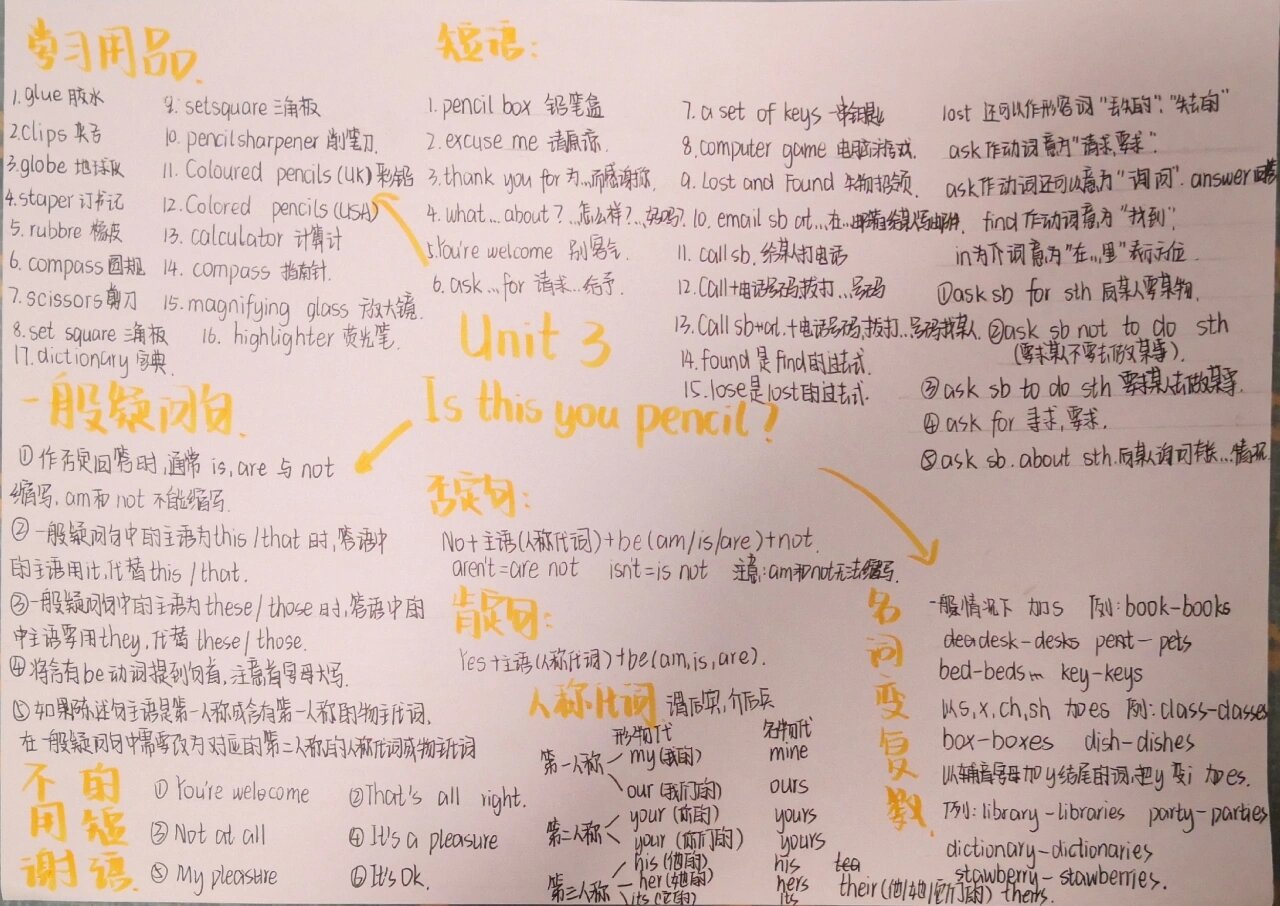 学习用品.
1.glue 胶水
2.clips 夹子
3.globe 地球仪
4.staper 订书记
5.rubbre 橡皮
6.compass 圆规
7.scissors 剪刀
8.set square 三角板
17.dictionary 字典
9.setsquare 三角板
10.pencilsharpener 削笔刀.
11.Coloured pencils(UK)彩铅
12.Colored pencils(USA)
13.calculator 计算计
14.compass 指南针.
15.magnifying glass 放大镜.
16.highlighter 荧光笔.
短语:
1.pencil box 铅笔盒
2.excuse me 请原谅.
3.thank you for 为...而感谢你.
4.what...about?...怎么样?...好吗?
5.You're welcome 别客气
6.ask...for 请求...给予.
7.a set of keys 一串钥匙
8.computer game 电脑游戏.
9.Lost and Found 失物招领
10.email sb at...在...邮箱给某人写邮件
11.call sb.给某人打电话
12.Call+电话号码,拨打...号码
13.Call sb+at.+电话号码,拨打...号码找某人
14.found 是find的过去式.
15.lose是lost的过去式.
lost 还可以作形容词"丢失的"."失去的"
ask作动词意为"请求,要求".
ask作动词还可以意为"询问".answer回答
find 作动词意为"找到".
in为介词意为"在...里"表示方位.
①ask sb for sth 向某人要某物.
②ask sb not to do sth
(要求某人不要去做某事).
③ask sb to do sth 要求某人去做某事.
④ask for 寻求,要求.
⑤ask sb.about sth.向某人询问有关...情况.
Unit 3
Is this you pencil?
一般疑问句.
①作否定回答时,通常is,are 与not
缩写.am和not 不能缩写.
②一般疑问句中的主语为this/that 时,答语中
的主语用it,代替this/that.
③一般疑问句中的主语为these/those时,答语中的
中主语要用they,代替these/those.
④将含有be动词提到句首,注意首字母大写.
⑤如果陈述句主语是第一人称或含有第一人称的物主代词,
在一般疑问句中需要改为对应的第二人称的人称代词或物主代词
否定句:
No+主语(人称代词)+be(am/is/are)+not.
aren't=are not isn't=is not 注意:am和not无法缩写.
肯定句:
Yes+主语(人称代词)+be(am,is,are).
人称代词 谓后宾,介后兵
形物代 名物代
第一人称 my(我的) mine
our(我们的) ours
第二人称 your(你的) yours
your(你们的) yours
第三人称 his(他的) his
her(她的) hers
its(它的) its
their(他/她/它们的) theirs.
不用谢的短语.
①You're welcome ②That's all right.
③Not at all ④It's a pleasure
⑤My pleasure ⑥It's Ok.
名词变复数.
一般情况下 加s 例:book-books
desk-desks pent-pets
bed-beds key-keys
以s,x,ch,sh 加es 例:class-classes
box-boxes dish-dishes
以辅音字母加y结尾的词,把y变i加es.
例:library-libraries party-parties
dictionary-dictionaries
stawberry-stawberries.